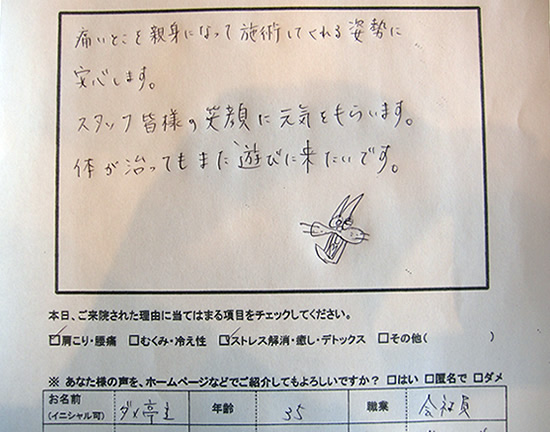 痛いところを親身になって施術してくれる姿勢に
安心します。
スタッフ皆様の笑顔に元気をもらいます。
体が治ってもまた遊びに来たいです。
本日、ご来院された理由に当てはまる項目をチェックしてください。
☑肩こり・腰痛 □むくみ・冷え性 ☑ストレス解消・癒し・デトックス □その他( )
※ あなた様の声を、ホームページなどでご紹介してもよろしいですか？ □はい □匿名で □ダメ
お名前 (イニシャル可) ダメ亭主 年齢 35 職業 会社員